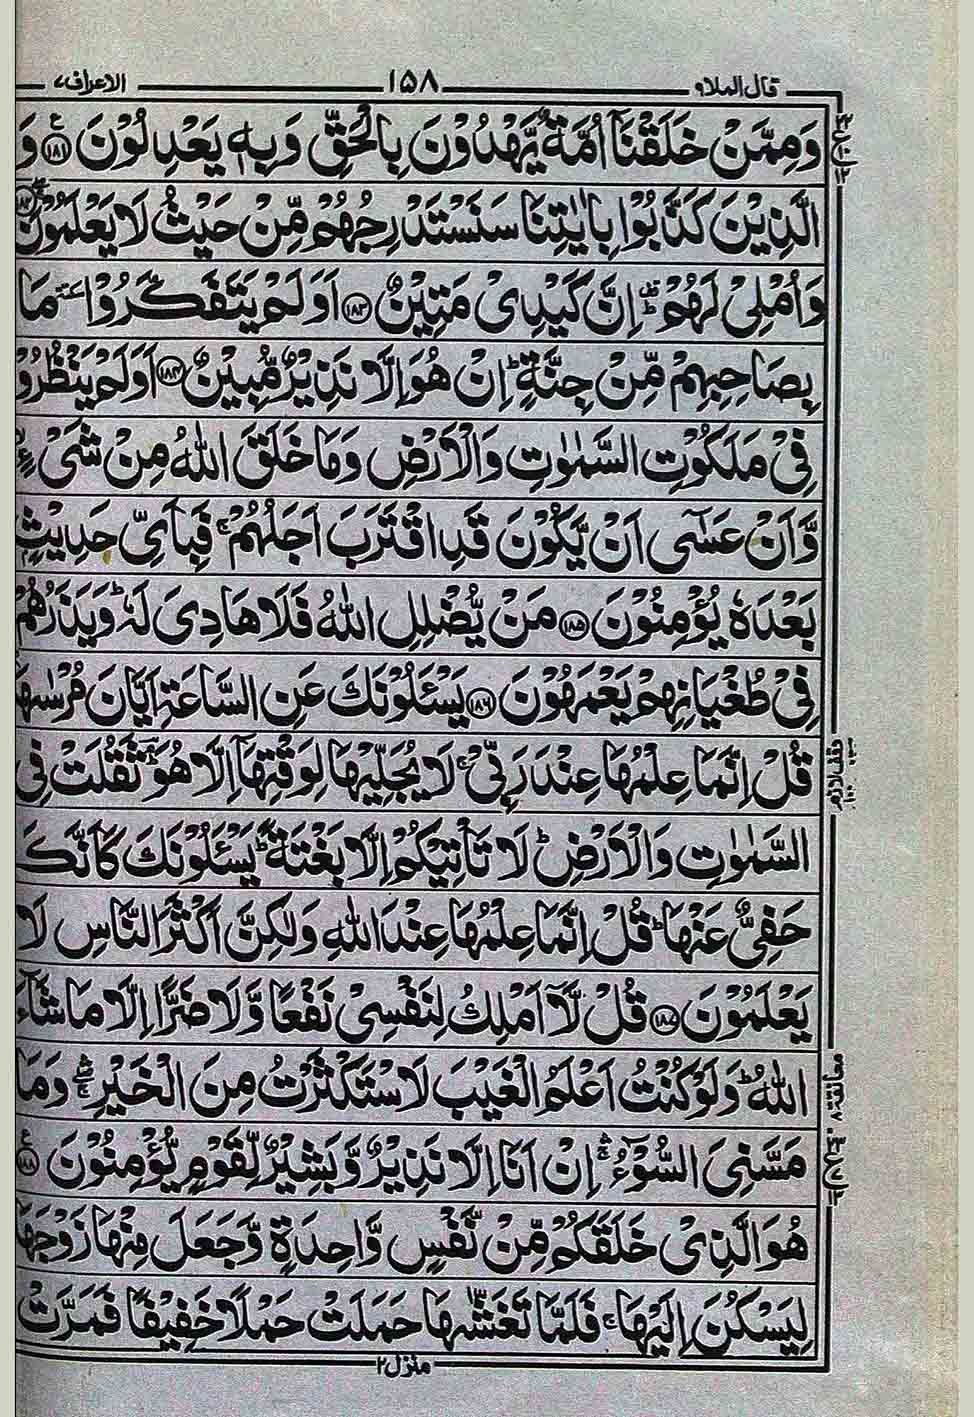 قال الملا ۹ ۱۵۸ الاعراف ۷
وَمِمَّنْ خَلَقْنَاۤ اُمَّةٌ يَّهْدُوْنَ بِالْحَقِّ وَبِهٖ يَعْدِلُوْنَ ﴿۱۸۱﴾ وَ
الَّذِيْنَ كَذَّبُوْا بِاٰيٰتِنَا سَنَسْتَدْرِجُهُمْ مِّنْ حَيْثُ لَا يَعْلَمُوْنَ ﴿۱۸۲﴾
وَاُمْلِيْ لَهُمْ ؕ اِنَّ كَيْدِيْ مَتِيْنٌ ﴿۱۸۳﴾ اَوَلَمْ يَتَفَكَّرُوْا مَا
بِصَاحِبِهِمْ مِّنْ جِنَّةٍ ؕ اِنْ هُوَ اِلَّا نَذِيْرٌ مُّبِيْنٌ ﴿۱۸۴﴾ اَوَلَمْ يَنْظُرُوْا
فِيْ مَلَكُوْتِ السَّمٰوٰتِ وَالْاَرْضِ وَمَا خَلَقَ اللّٰهُ مِنْ شَيْءٍ
وَّاَنْ عَسٰۤى اَنْ يَّكُوْنَ قَدِ اقْتَرَبَ اَجَلُهُمْ ۚ فَبِاَيِّ حَدِيْثٍ
بَعْدَهٗ يُؤْمِنُوْنَ ﴿۱۸۵﴾ مَنْ يُّضْلِلِ اللّٰهُ فَلَا هَادِيَ لَهٗ ؕ وَيَذَرُهُمْ
فِيْ طُغْيَانِهِمْ يَعْمَهُوْنَ ﴿۱۸۶﴾ يَسْـَٔلُوْنَكَ عَنِ السَّاعَةِ اَيَّانَ مُرْسٰىهَا
قُلْ اِنَّمَا عِلْمُهَا عِنْدَ رَبِّيْ ۚ لَا يُجَلِّيْهَا لِوَقْتِهَاۤ اِلَّا هُوَ ؕ ثَقُلَتْ فِي
السَّمٰوٰتِ وَالْاَرْضِ ؕ لَا تَاْتِيْكُمْ اِلَّا بَغْتَةً ؕ يَسْـَٔلُوْنَكَ كَاَنَّكَ
حَفِيٌّ عَنْهَا ؕ قُلْ اِنَّمَا عِلْمُهَا عِنْدَ اللّٰهِ وَلٰكِنَّ اَكْثَرَ النَّاسِ لَا
يَعْلَمُوْنَ ﴿۱۸۷﴾ قُلْ لَّاۤ اَمْلِكُ لِنَفْسِيْ نَفْعًا وَّلَا ضَرًّا اِلَّا مَا شَآءَ
اللّٰهُ ؕ وَلَوْ كُنْتُ اَعْلَمُ الْغَيْبَ لَاسْتَكْثَرْتُ مِنَ الْخَيْرِ ۚ وَمَا
مَسَّنِيَ السُّوْٓءُ ۚ اِنْ اَنَا اِلَّا نَذِيْرٌ وَّبَشِيْرٌ لِّقَوْمٍ يُّؤْمِنُوْنَ ﴿۱۸۸﴾
هُوَ الَّذِيْ خَلَقَكُمْ مِّنْ نَّفْسٍ وَّاحِدَةٍ وَّجَعَلَ مِنْهَا زَوْجَهَا
لِيَسْكُنَ اِلَيْهَا ۚ فَلَمَّا تَغَشّٰىهَا حَمَلَتْ حَمْلًا خَفِيْفًا فَمَرَّتْ
منزل ۲